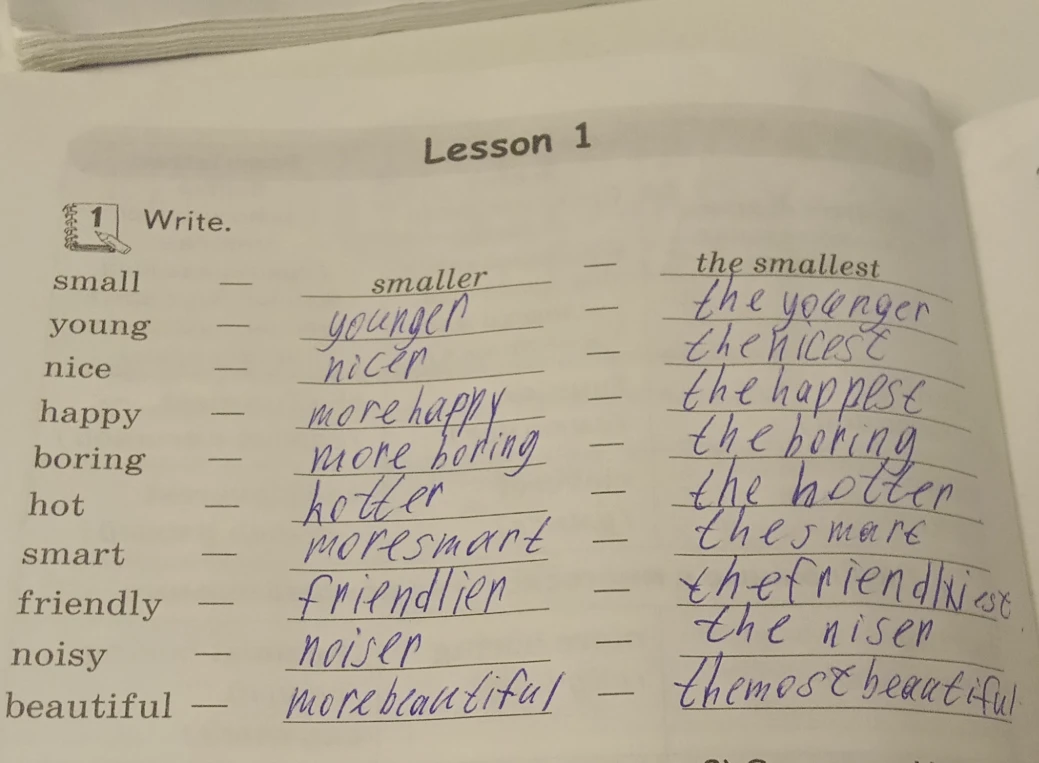 Lesson 1
1 Write.
small — smaller — the smallest
young — younger — the younger
nice — nicer — the nicest
happy — more happy — the happest
boring — more boring — the boring
hot — hotter — the hotter
smart — more smart — the smart
friendly — friendlier — the friendliest
noisy — noiser — the niser
beautiful — more beautiful — the most beautiful